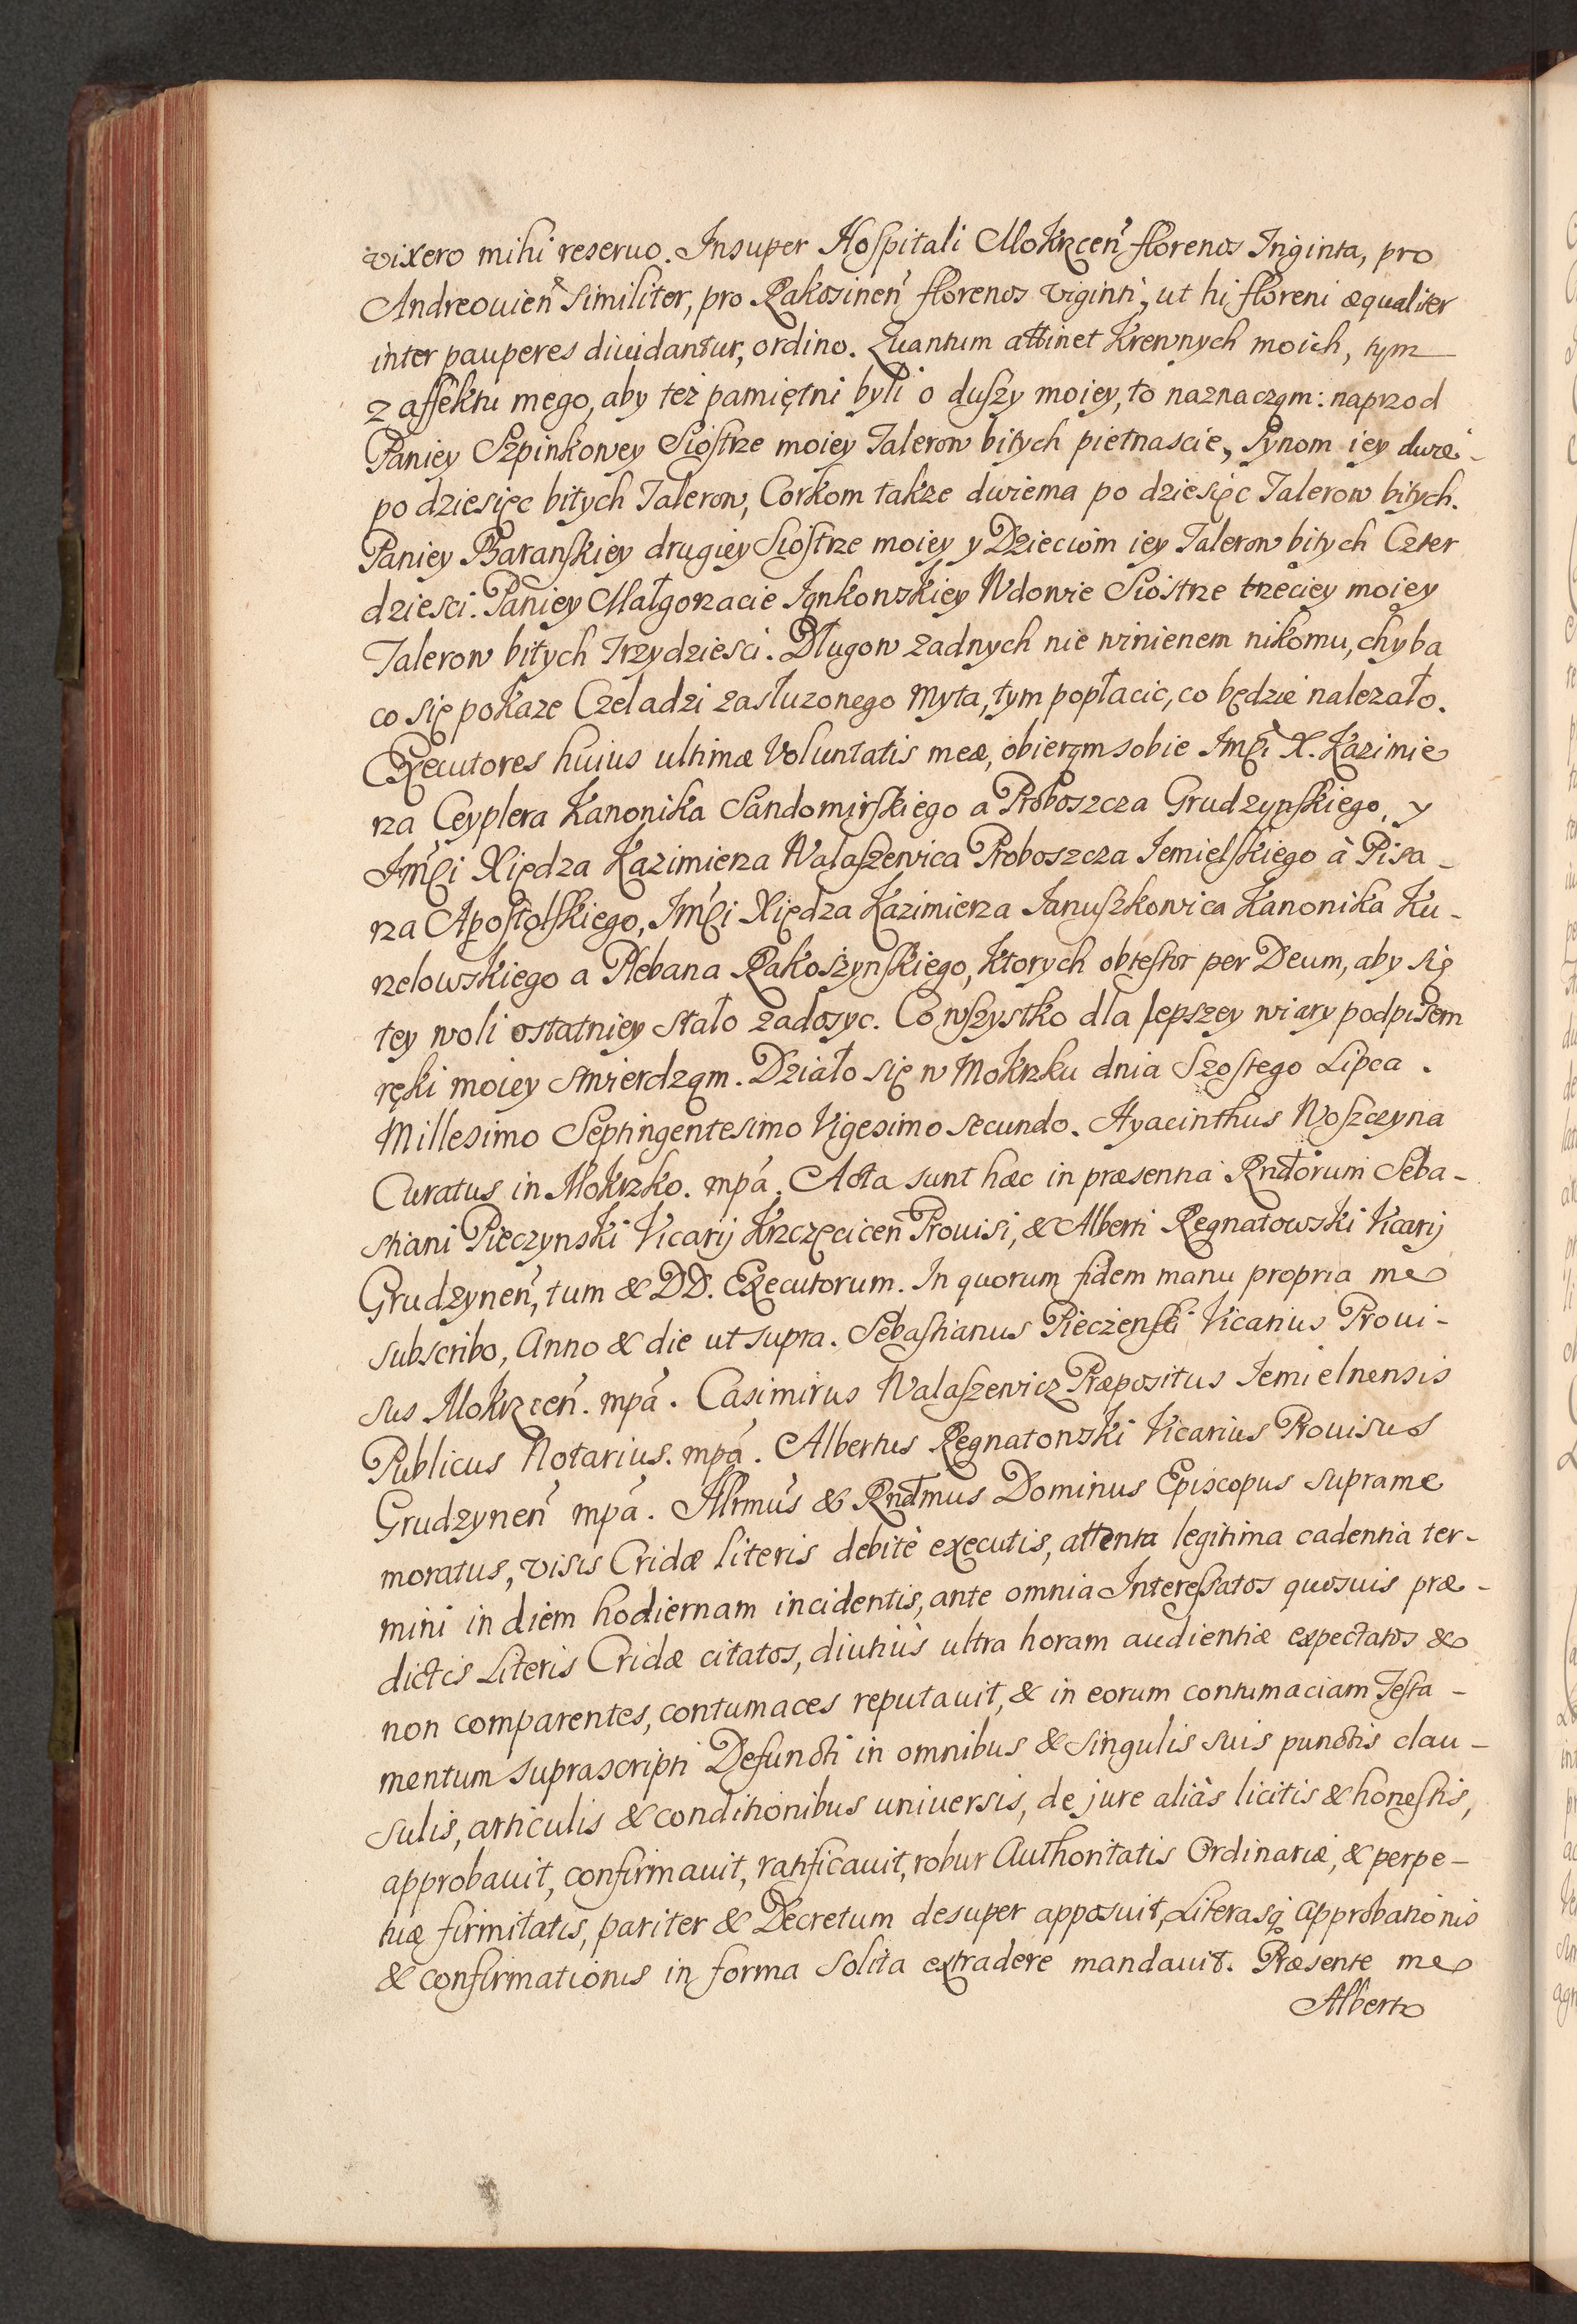 vixero mihi reseruo. Insuper Hospitali Mokrzceñ florenos Triginta, pro
Andreouieñ similiter, pro Rakosineñ florenos viginti, ut hi floreni æqualiter
inter pauperes diuidantur, ordino. Quantum attinet Krewnych moich, tym
z affektu mego, aby też pamiętni byli o duszy moiey, to naznaczam: naprzod
Paniey Szpinkowey Siostrze moiey Talerow bitych pietnascie, Synom iey dwæ-
po dziesięc bitych Talerow, Corkom takze dwiema po dziesięc Talerow bitych.
Paniey Baranskiey drugiey Siostrze moiey y Dzieciom iey Talerow bitych Czter
dziesci. Paniey Małgorzacie Iankowskiey Wdowie Siostrze trzeciey moiey
Talerow bitych Trzydziesci. Długow zadnych nie winienem nikomu, chyba
co się pokaze Czeladzi zasłuzonego Myta, tym popłacic, co będzie nalezało.
Executores huius ultimæ Voluntatis meæ, obieram sobie Imći X. Kazimie
rza Ceyplera Kanonika Sandomirskiego a Proboszcza Grudzynskiego, y
Imći Xiędza Kazimierza Walaszewica Proboszcza Iemielskiego à Pisa-
rza Apostolskiego, Imći Xiędza Kazimierza Ianuszkowica Kanonika Ku-
rzelowskiego a Plebana Rakoszynskiego, Ktorych obtestor per Deum, aby się
tey woli ostatniey stało zadosyc. Co wszystko dla lepszey wiary podpisem
ręki moiey stwierdzam. Działo się w Mokrzku dnia Szostego Lipca.
Millesimo Septingentesimo Vigesimo secundo. Hyacinthus Woszczyna
Curatus in Mokrzko. mpá. Acta sunt hæc in præsentia Rndorum Seba-
stiani Pieczynski Vicarij Krzczęciceñ Prouisi, & Alberti Regnatowski Vicarij
Grudzyneñ, tum & DD. Executorum. In quorum fidem manu propria me
subscribo, Anno & die ut supra. Sebastianus Pieczenski Vicarius Proui-
sus Mokrzceñ. mpá. Casimirus Walaszewicz Præpositus Iemielnensis
Publicus Notarius. mpá. Albertus Regnatowski Vicarius Prouisus
Grudzyneñ mpá. Illrmus & Rndmus Dominus Episcopus supra me
moratus, visis Cridæ literis debitè executis, attenta legitima cadentia ter-
mini in diem hodiernam incidentis, ante omnia Interessatos quosuis præ-
dictis Literis Cridæ citatos, diutiùs ultra horam audientiæ expectatos &
non comparentes, contumaces reputauit, & in eorum contumaciam Testa-
mentum suprascripti Defuncti in omnibus & singulis suis punctis clau-
sulis, articulis & conditionibus uniuersis, de jure aliàs licitis & honestis,
approbauit, confirmauit, ratificauit, robur Authoritatis Ordinariæ, & perpe-
tuæ firmitatis, pariter & Decretum desuper apposuit, Literasq́ approbationis
& confirmationis in forma solita extradere mandauit. Præsente me
Alberto